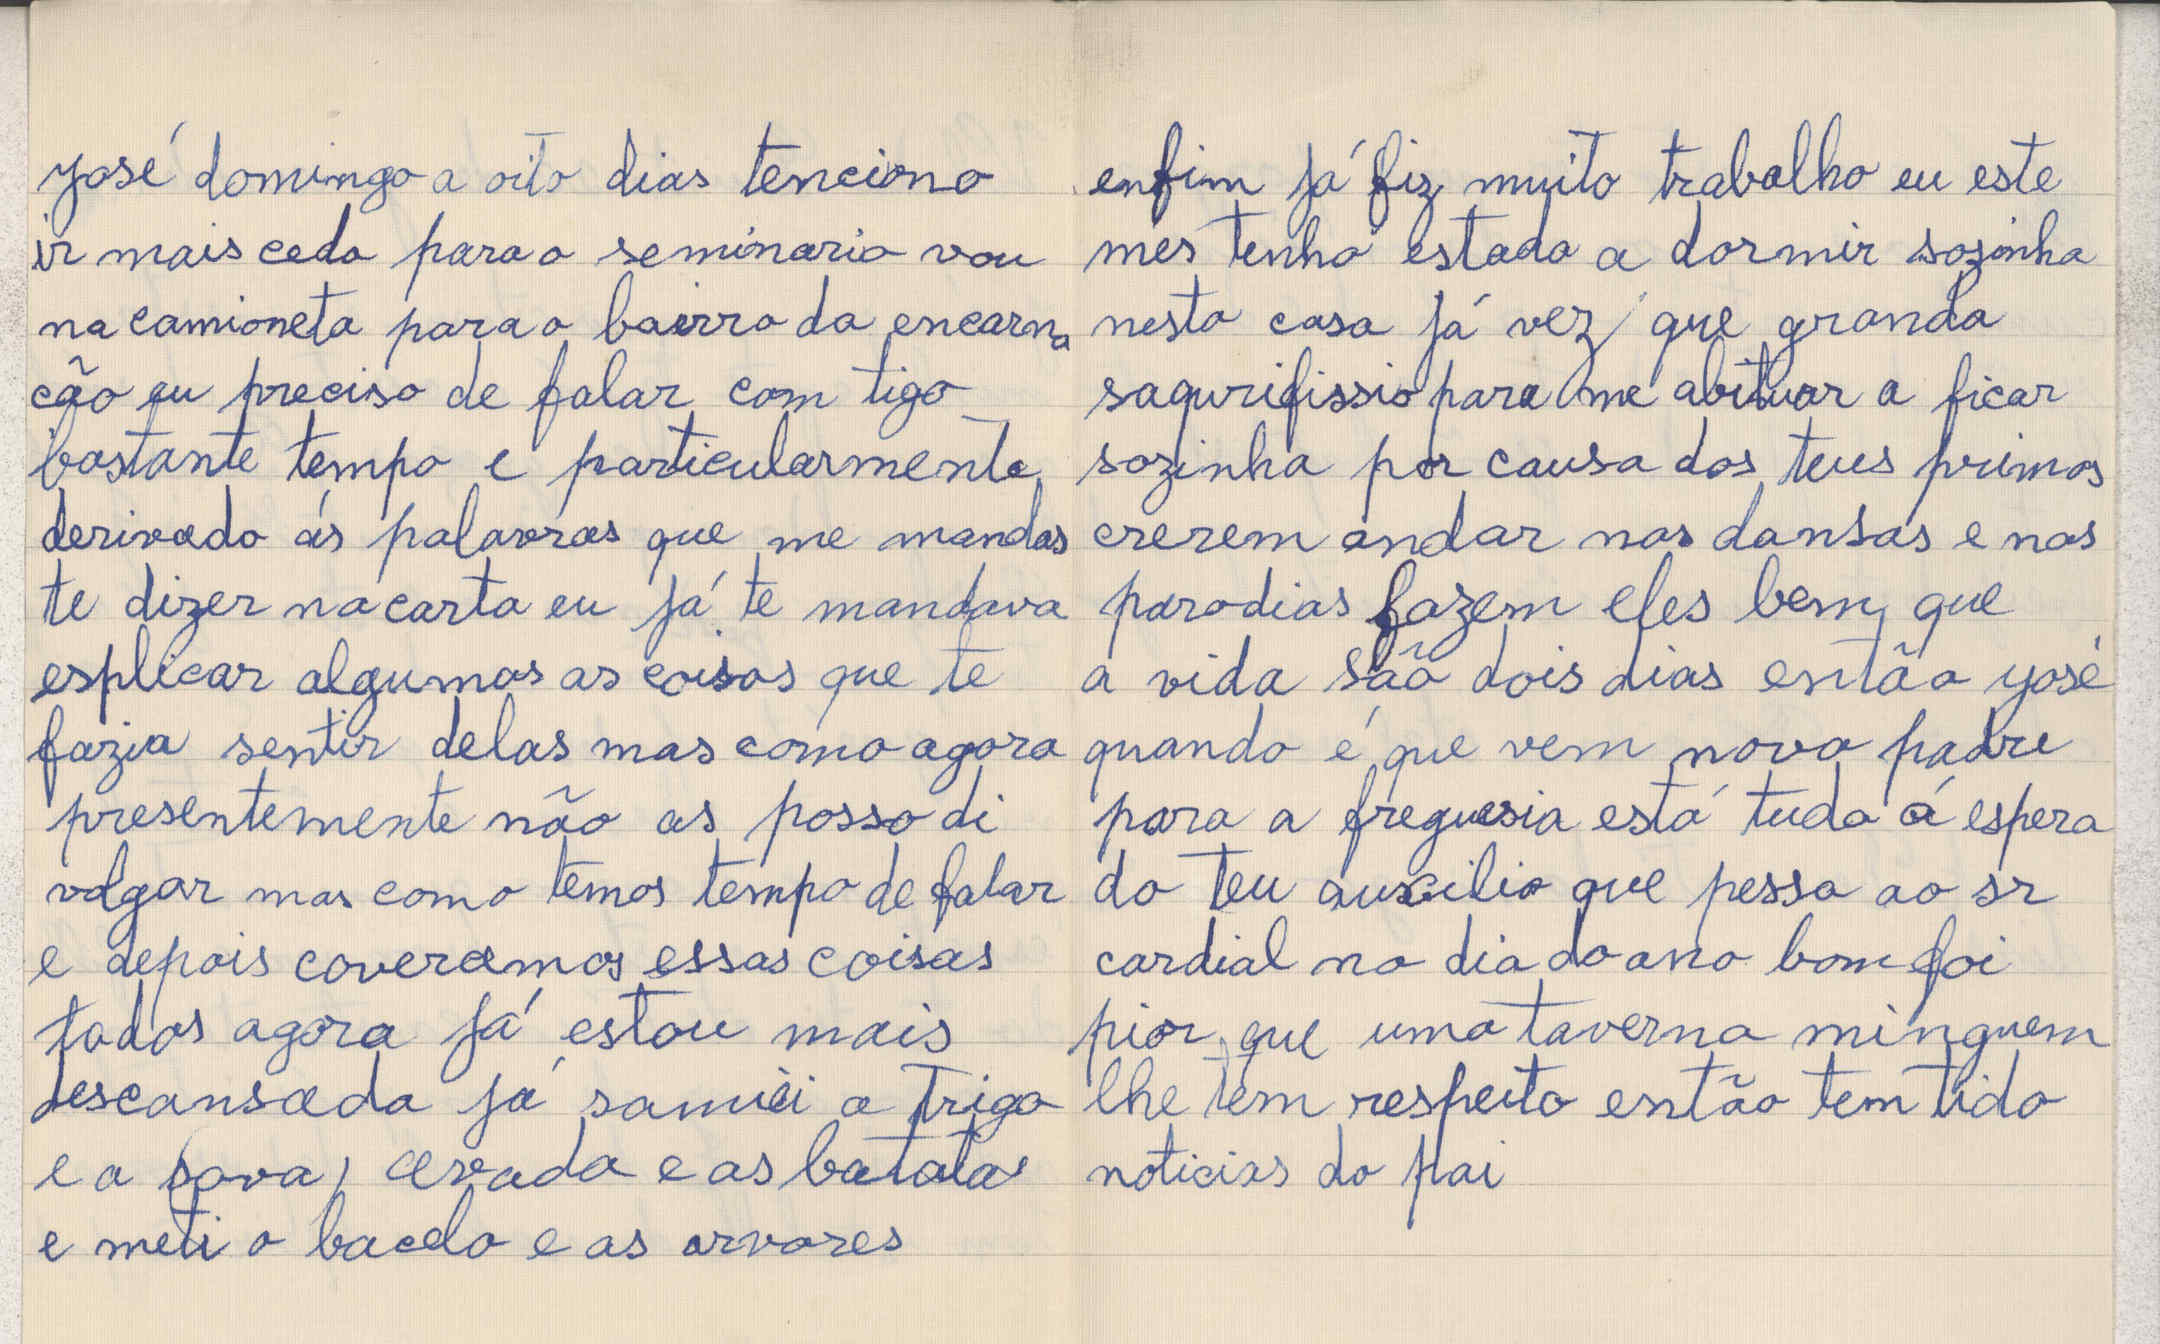 José domingo a oito dias tenciono
ir mais cedo para o seminario vou
na camioneta para o bairro da encarna
cão eu preciso de falar com tigo
bastante tempo e particularmente
derivado ás palavras que me mandas
te dizer na carta eu já te mandava
esplicar algumas as coisas que te
fazia sentir delas mas como agora
presentemente não as posso di
volgar mas como temos tempo de falar
e depois coveramos essas coisas
todas agora já estou mais
descansada já samiei o trigo
e a fava, cevada e as batatas
e meti o bacelo e as arvores
enfim já fiz muito trabalho eu este
mes tenho estado a dormir sozinha
nesta casa já vez que grande
sagurifissio para me abituar a ficar
sozinha por causa dos teus primos
crerem andar nas dansas e nas
parodias fazem eles bem que
a vida são dois dias então José
quando é que vem novo padre
para a freguesia está tudo á espera
do teu auscilio que pessa ao sr
cardial no dia do ano bom foi
pior que uma taverna minguem
lhe tem respeito então tem tido
noticias do pai